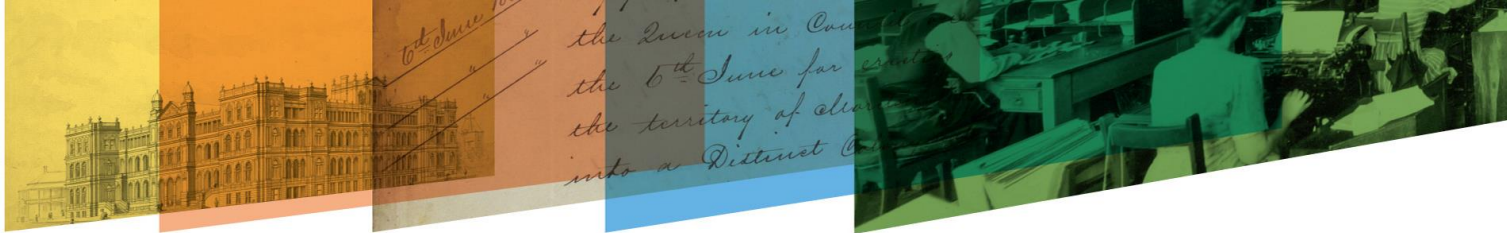 6th June
the Queen in Cou
the 6th June for
the territory of
into a Distinct